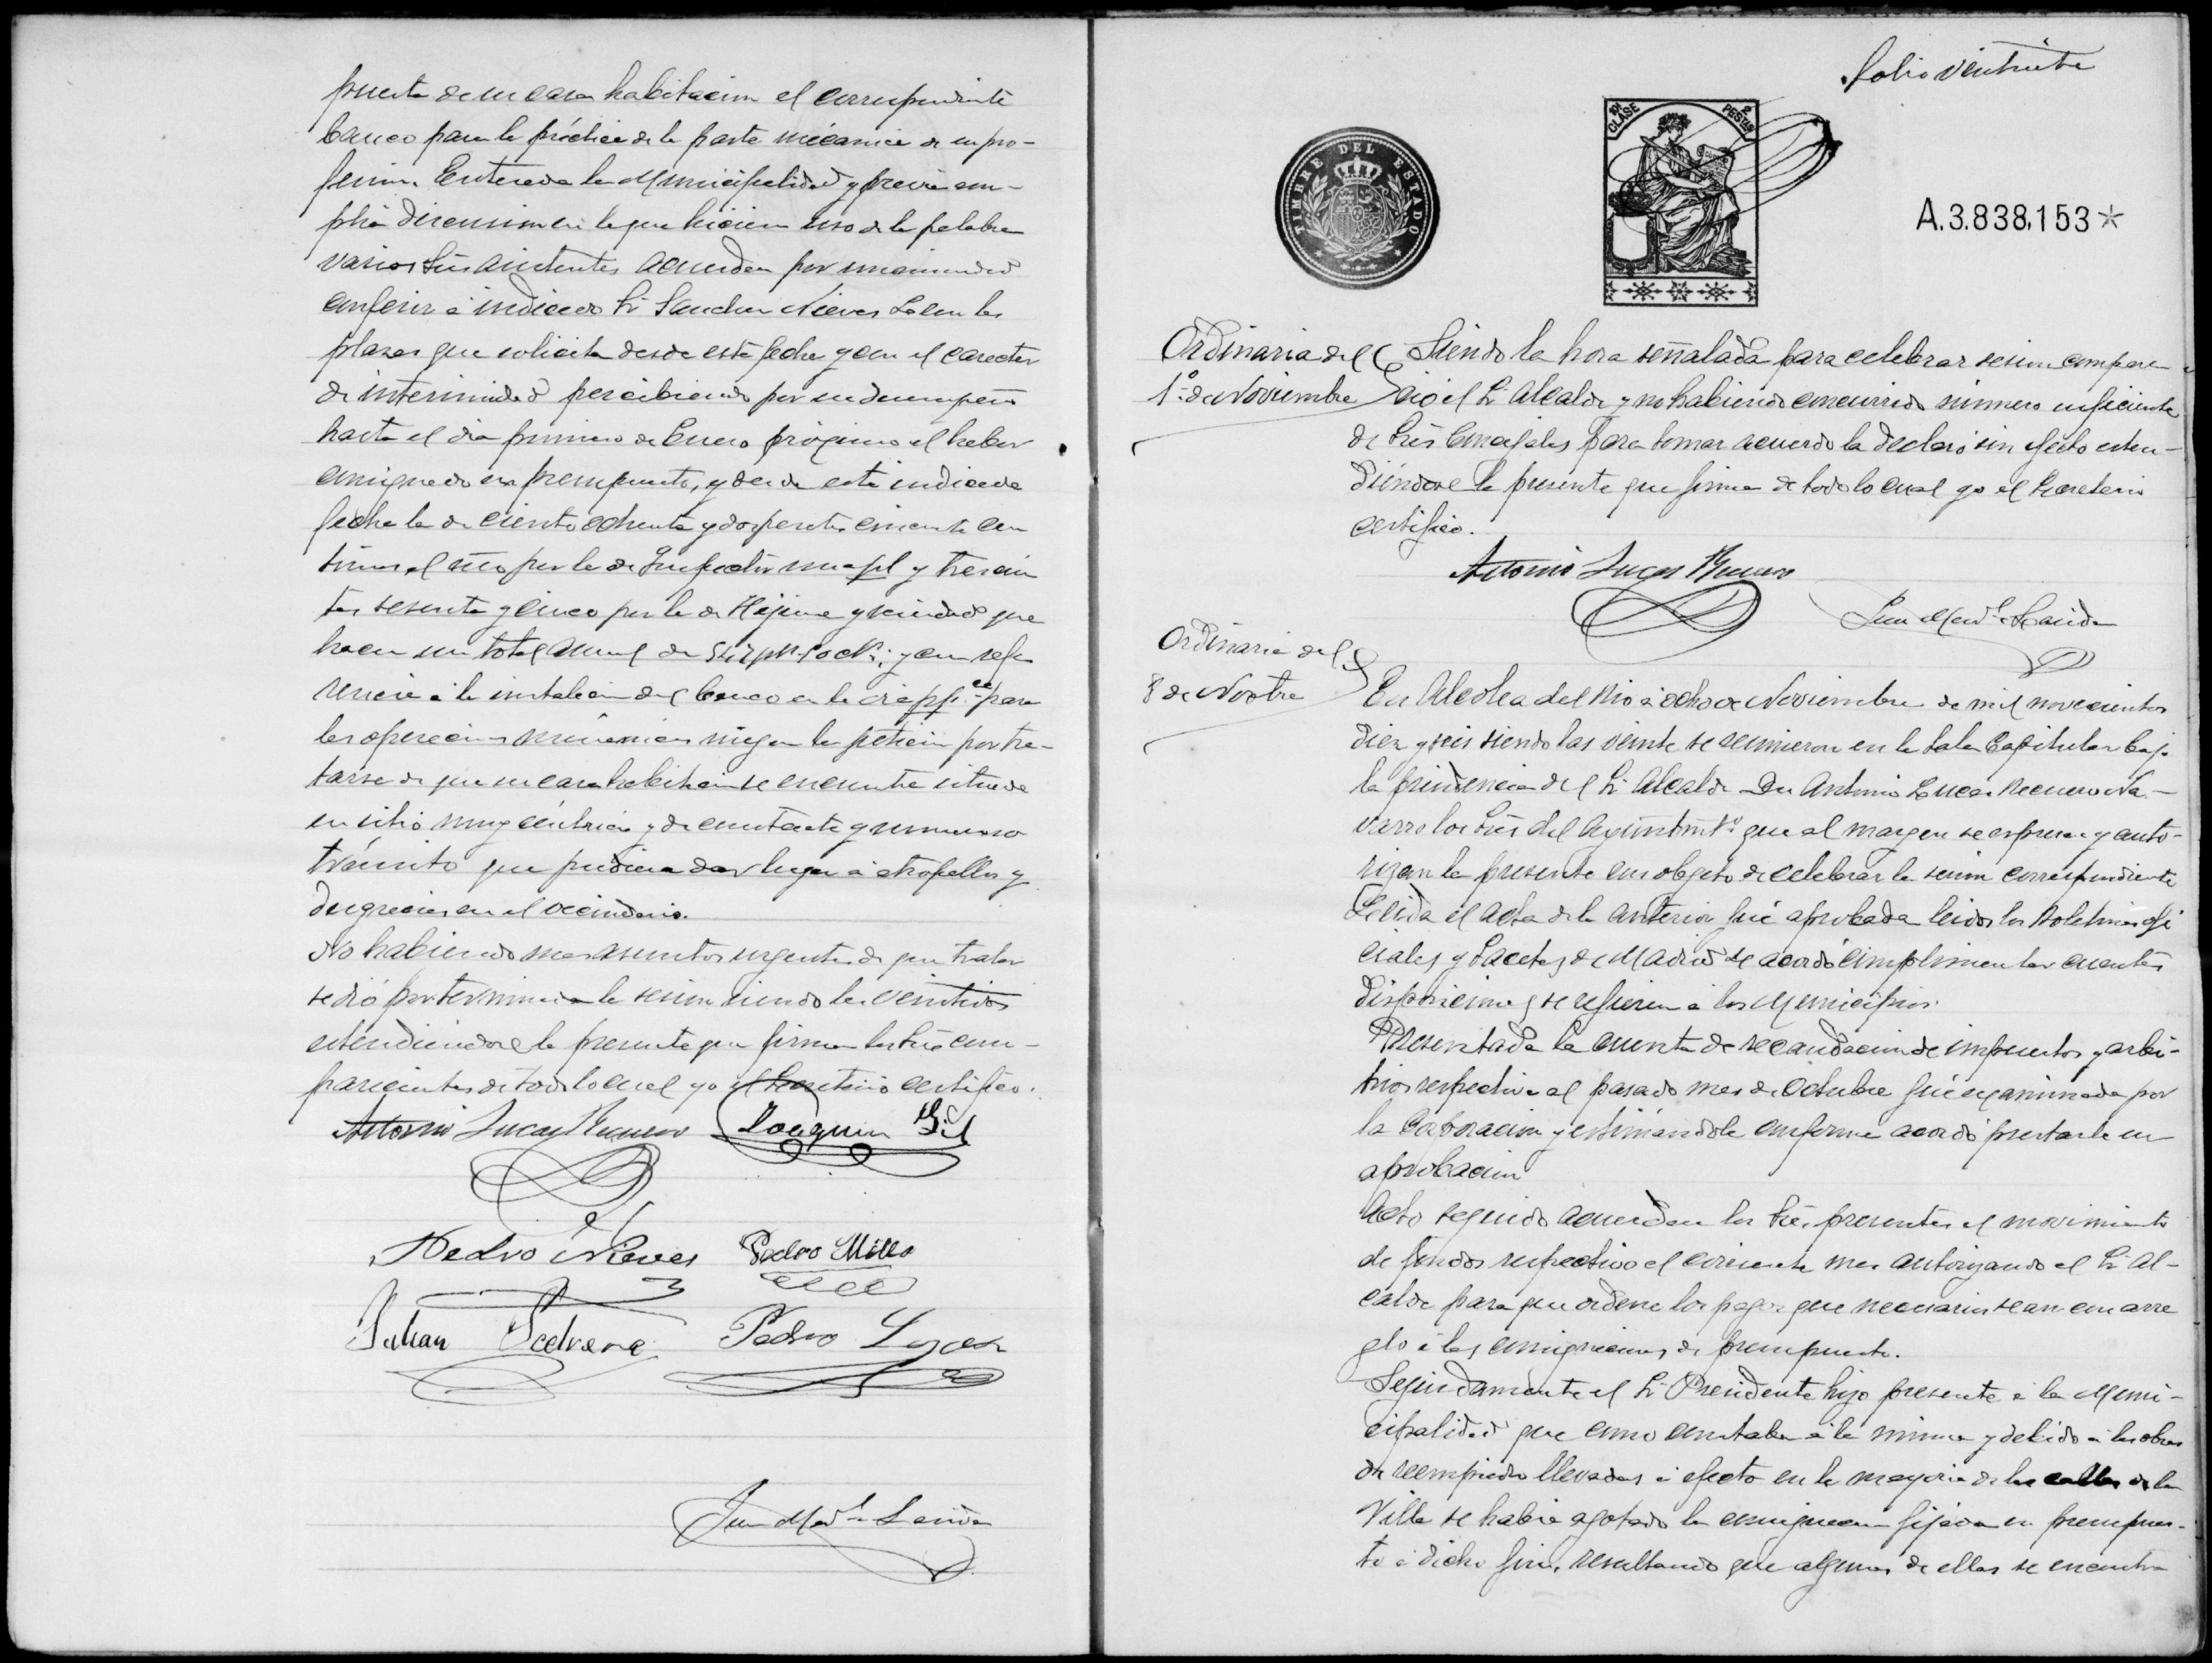 puerta de su casa habitacion el correspondiente
banco para la práctica de la parte mecanica de su pro-
fesion. Enterada la Municipalidad y previa am-
plia discusion en la que hicieron uso de la palabra
varios Sres asistentes acuerdan por unanimidad
conferir á indicado Sr Sanchez Nieves Leon las
plazas que solicita desde esta fecha y con el caracter
de interinidad percibiendo por su desempeño
hasta el dia primero de Enero próximo el haber
consignado en presupuesto, y desde esta indicada
fecha la de ciento ochenta y dos pesetas cincuenta cen
timos al año por la de Inspector mupl y trescien
tas sesenta y cinco por la de Higiene y sanidad que
hacen un total anual de pts; y con refe
rencia á la instalacion del banco en la para
las operaciones mecánicas niegan la peticion por tra-
tarse de que su casa habitacion se encuentra situada
en sitio muy céntrico y de constante y numeroso
tránsito que pudiera dar lugar á atropellos y
desgracias en el vecindario.
No habiendo mas asuntos urgentes de que tratar
se dió por terminada la sesion siendo las veintidos
estendiendose la presente que firman los Sres com-
parecientes de todo lo cual yo el Secretario certifico.
Antonio Lucas Recuero Joaquin Gil
Pedro Nieves Pedro Milla
Julian Pedro Lucas
Juan Man.l
Folio veintisiete
10ª CLASE 2 PESETAS
TIMBRE DEL ESTADO
A.3.838,153*
Ordinaria del
1º de Noviembre
Siendo la hora señalada para celebrar sesion compare
ció el Sr Alcalde y no habiendo concurrido número suficiente
de Sres Concejales para tomar acuerdo la declaró sin efecto esten-
diéndose la presente que firma de todo lo cual yo el Secretario
certifico.
Antonio Lucas Recuero
Juan Man.l
Ordinaria del
8 de Novbre
En Alcolea del Rio á ocho de Noviembre de mil novecientos
diez y seis siendo las veinte se reunieron en la Sala Capitular bajo
la presidencia del Sr Alcalde Don Antonio Lucas Recuero Na-
varro los Sres del Ayuntmto que al margen se espresan y auto-
rizan la presente con objeto de celebrar la sesion correspondiente
Leida el acta de la anterior fué aprobada leidos los Boletines ofi
ciales y Gacetas de Madrid se acordó cumplimentar cuantas
disposiciones se refieren á los Municipios.
Presentada la cuenta de recaudacion de impuestos y arbi-
trios respectiva al pasado mes de Octubre fué examinada por
la Corporacion y estimándola conforme acordó prestarle su
aprobacion
Acto seguido acuerdan los Sres presentes el movimiento
de fondos respectivo el corriente mes autorizando el Sr Al-
calde para que ordene los pagos que necesarios sean con arre
glo á las consignaciones de presupuesto.
Seguidamente el Sr Presidente hizo presente á la Muni-
cipalidad que como constaba á la misma y debido á las obras
de reempiedro llevadas á efecto en la mayoria de las calles de la
Villa se habia agotado la consignacion fijada en presupues-
to á dicho fin, resultando que algunas de ellas se encuentra